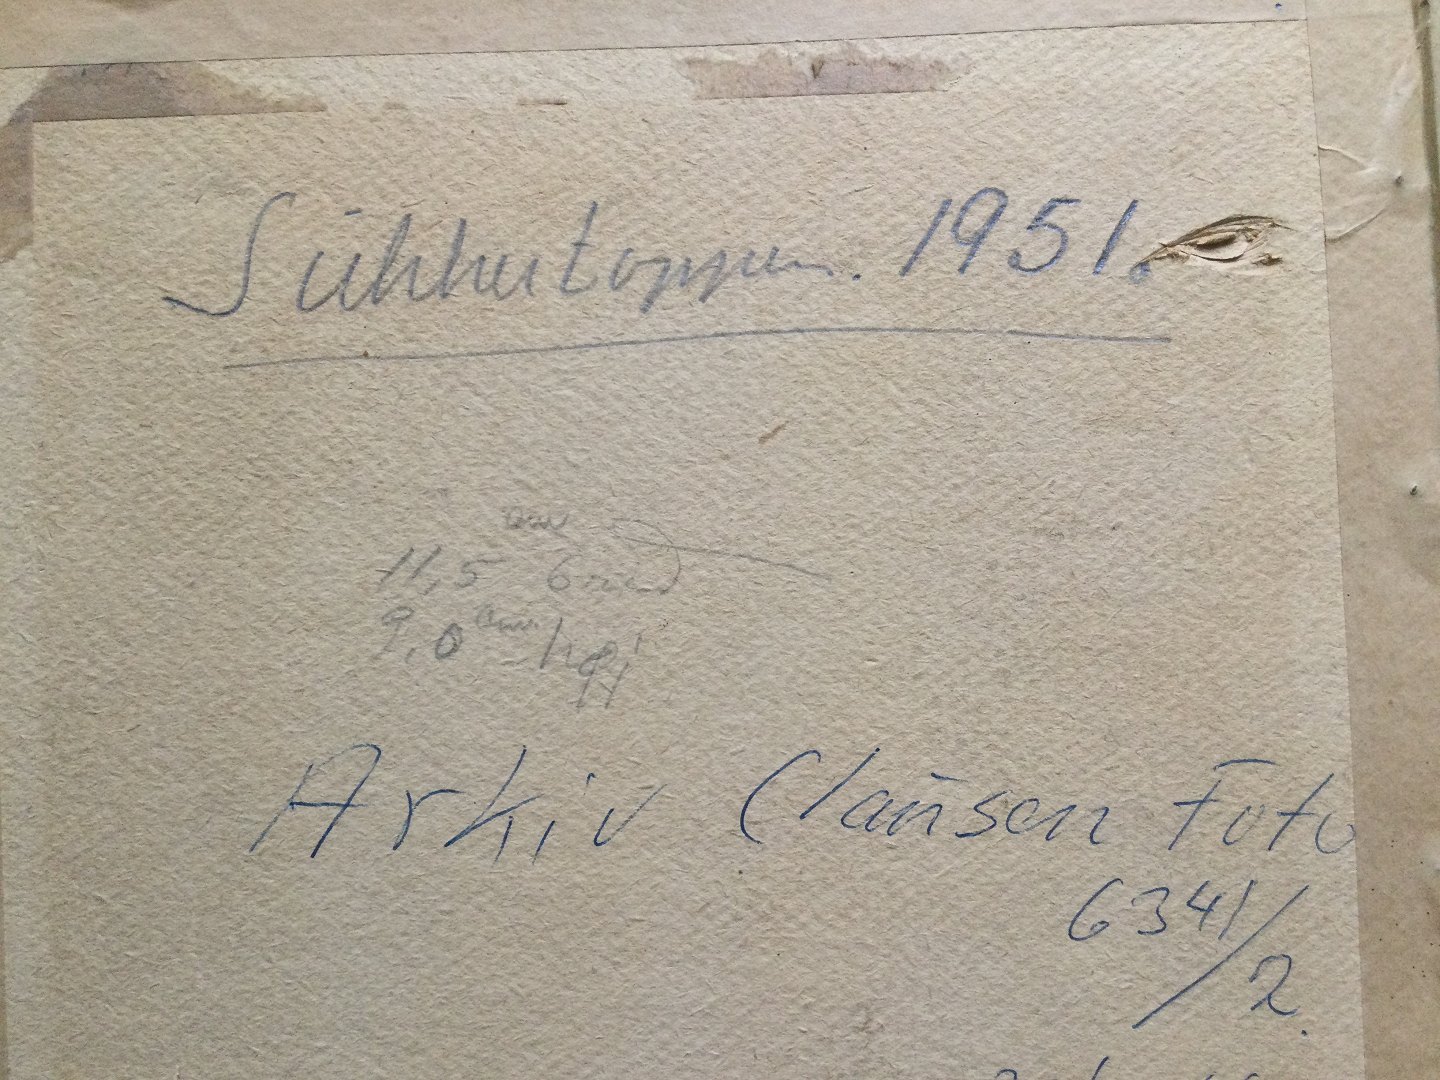 Sukkertoppen. 1951.
11,5 bred
9,0 cm. høj
Arkiv Clausen Foto
6341/2.